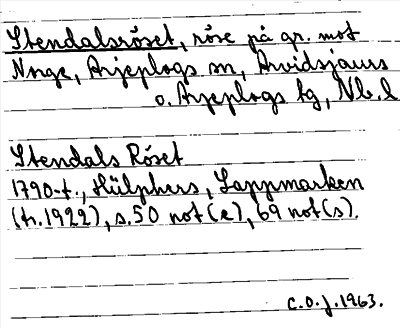 Stendalsröset, röse på gr. mot
Norge, Arjeplogs sn, Arvidsjaurs
o. Arjeplogs tg, Nb. l
Stendals Röset
1790-t., Hülphers, Lappmarken
(tr. 1922), s. 50 not (e), 69 not (s).
C.O.J. 1963.